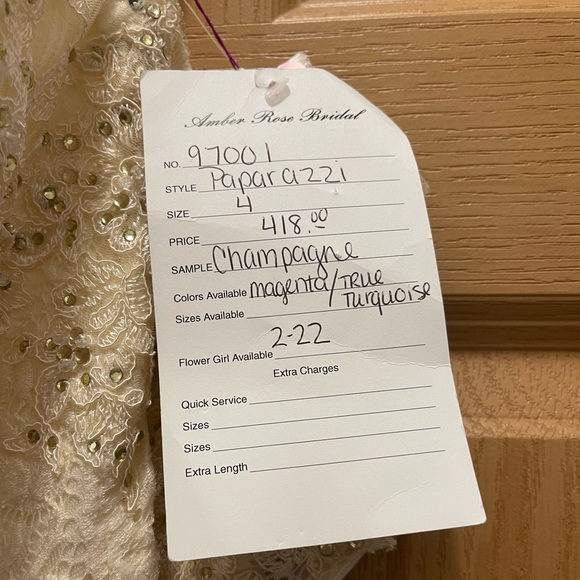 Amber Rose Bridal
NO. 97001
STYLE Paparazzi
SIZE 4
PRICE 418.00
SAMPLE Champagne
Colors Available Magenta/True Turquoise
Sizes Available 2-22
Flower Girl Available
Extra Charges
Quick Service
Sizes
Sizes
Extra Length